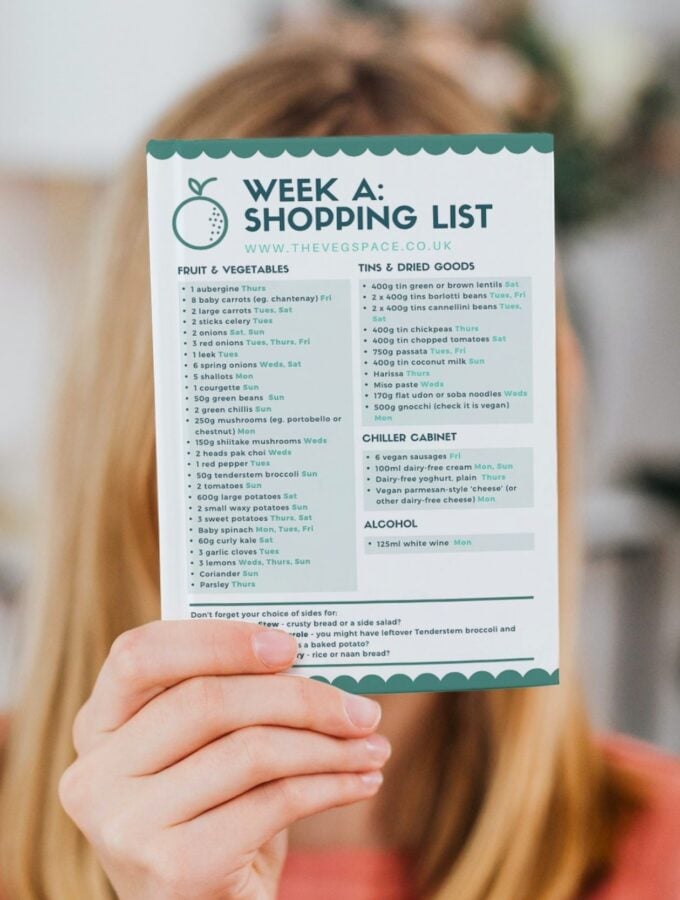 WEEK A:
SHOPPING LIST
WWW.THEVEGSPACE.CO.UK
FRUIT & VEGETABLES
• 1 aubergine Thurs
• 8 baby carrots (eg. chantenay) Fri
• 2 large carrots Tues, Sat
• 2 sticks celery Tues
• 2 onions Sat, Sun
• 3 red onions Tues, Thurs, Fri
• 1 leek Tues
• 6 spring onions Weds, Sat
• 5 shallots Mon
• 1 courgette Sun
• 50g green beans Sun
• 2 green chillis Sun
• 250g mushrooms (eg. portobello or
chestnut) Mon
• 150g shiitake mushrooms Weds
• 2 heads pak choi Weds
• 1 red pepper Tues
• 50g tenderstem broccoli Sun
• 2 tomatoes Sun
• 600g large potatoes Sat
• 2 small waxy potatoes Sun
• 3 sweet potatoes Thurs, Sat
• Baby spinach Mon, Tues, Fri
• 60g curly kale Sat
• 3 garlic cloves Tues
• 3 lemons Weds, Thurs, Sun
• Coriander Sun
• Parsley Thurs
TINS & DRIED GOODS
• 400g tin green or brown lentils Sat
• 2 x 400g tins borlotti beans Tues, Fri
• 2 x 400g tins cannellini beans Tues,
Sat
• 400g tin chickpeas Thurs
• 400g tin chopped tomatoes Sat
• 750g passata Tues, Fri
• 400g tin coconut milk Sun
• Harissa Thurs
• Miso paste Weds
• 170g flat udon or soba noodles Weds
• 500g gnocchi (check it is vegan)
Mon
CHILLER CABINET
• 6 vegan sausages Fri
• 100ml dairy-free cream Mon, Sun
• Dairy-free yoghurt, plain Thurs
• Vegan parmesan-style 'cheese' (or
other dairy-free cheese) Mon
ALCOHOL
• 125ml white wine Mon
Don't forget your choice of sides for:
Stew - crusty bread or a side salad?
- you might have leftover Tenderstem broccoli and
a baked potato?
- rice or naan bread?